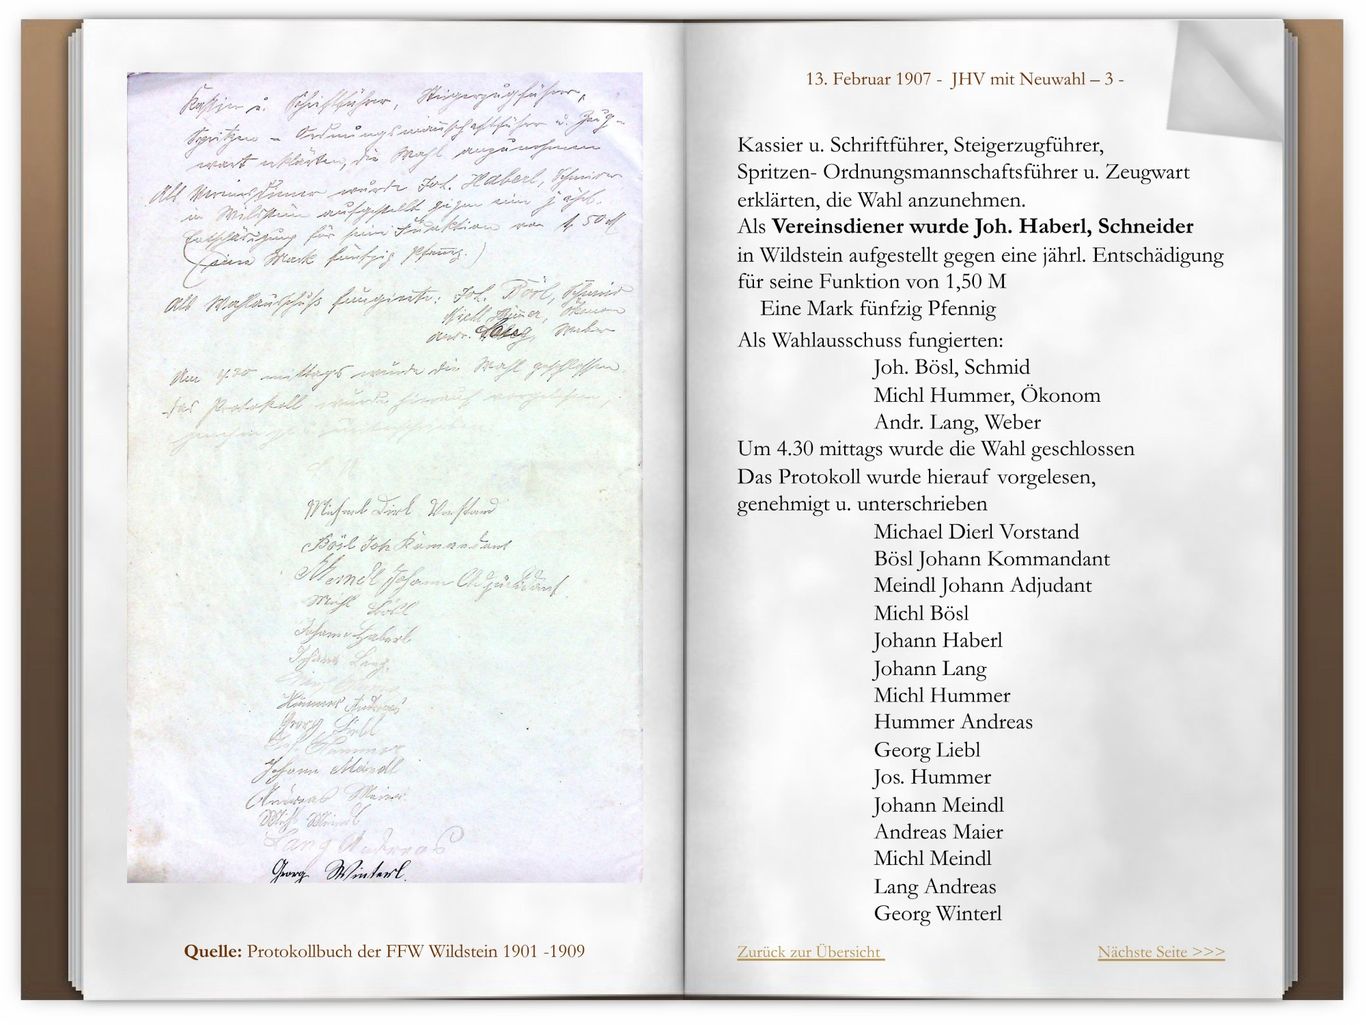 Kassier u. Schriftführer, Steigerzugführer,
Spritzen - Ordnungsmannschaftsführer u. Zeug-
wart erklärten, die Wahl anzunehmen
Als Vereinsdiener wurde Joh. Haberl, Schneider
in Wildstein aufgestellt gegen eine jährl.
Entschädigung für seine Funktion von 1,50 M
(eine Mark fünfzig Pfennig.)
Als Wahlausschuß fungierte: Joh. Bösl, Schmid
Michl Hummer, Ökonom
Andr. Lang, Weber
Um 4.30 mittags wurde die Wahl geschlossen
Das Protokoll wurde hierauf vorgelesen,
Michael Dirl Vorstand
Bösl Joh Komandant
Meindl Johann
Michl Bösl
Johann Haberl
Johann Lang
Hummer Andreas
Georg Liebl
Jos. Hummer
Johann Meindl
Andreas Meier
Michl Meindl
Lang Andreas
Georg Winterl.
Quelle: Protokollbuch der FFW Wildstein 1901 -1909
13. Februar 1907 - JHV mit Neuwahl – 3 -
Kassier u. Schriftführer, Steigerzugführer,
Spritzen- Ordnungsmannschaftsführer u. Zeugwart
erklärten, die Wahl anzunehmen.
Als Vereinsdiener wurde Joh. Haberl, Schneider
in Wildstein aufgestellt gegen eine jährl. Entschädigung
für seine Funktion von 1,50 M
Eine Mark fünfzig Pfennig
Als Wahlausschuss fungierten:
Joh. Bösl, Schmid
Michl Hummer, Ökonom
Andr. Lang, Weber
Um 4.30 mittags wurde die Wahl geschlossen
Das Protokoll wurde hierauf vorgelesen,
genehmigt u. unterschrieben
Michael Dierl Vorstand
Bösl Johann Kommandant
Meindl Johann Adjudant
Michl Bösl
Johann Haberl
Johann Lang
Michl Hummer
Hummer Andreas
Georg Liebl
Jos. Hummer
Johann Meindl
Andreas Maier
Michl Meindl
Lang Andreas
Georg Winterl
Zurück zur Übersicht
Nächste Seite >>>